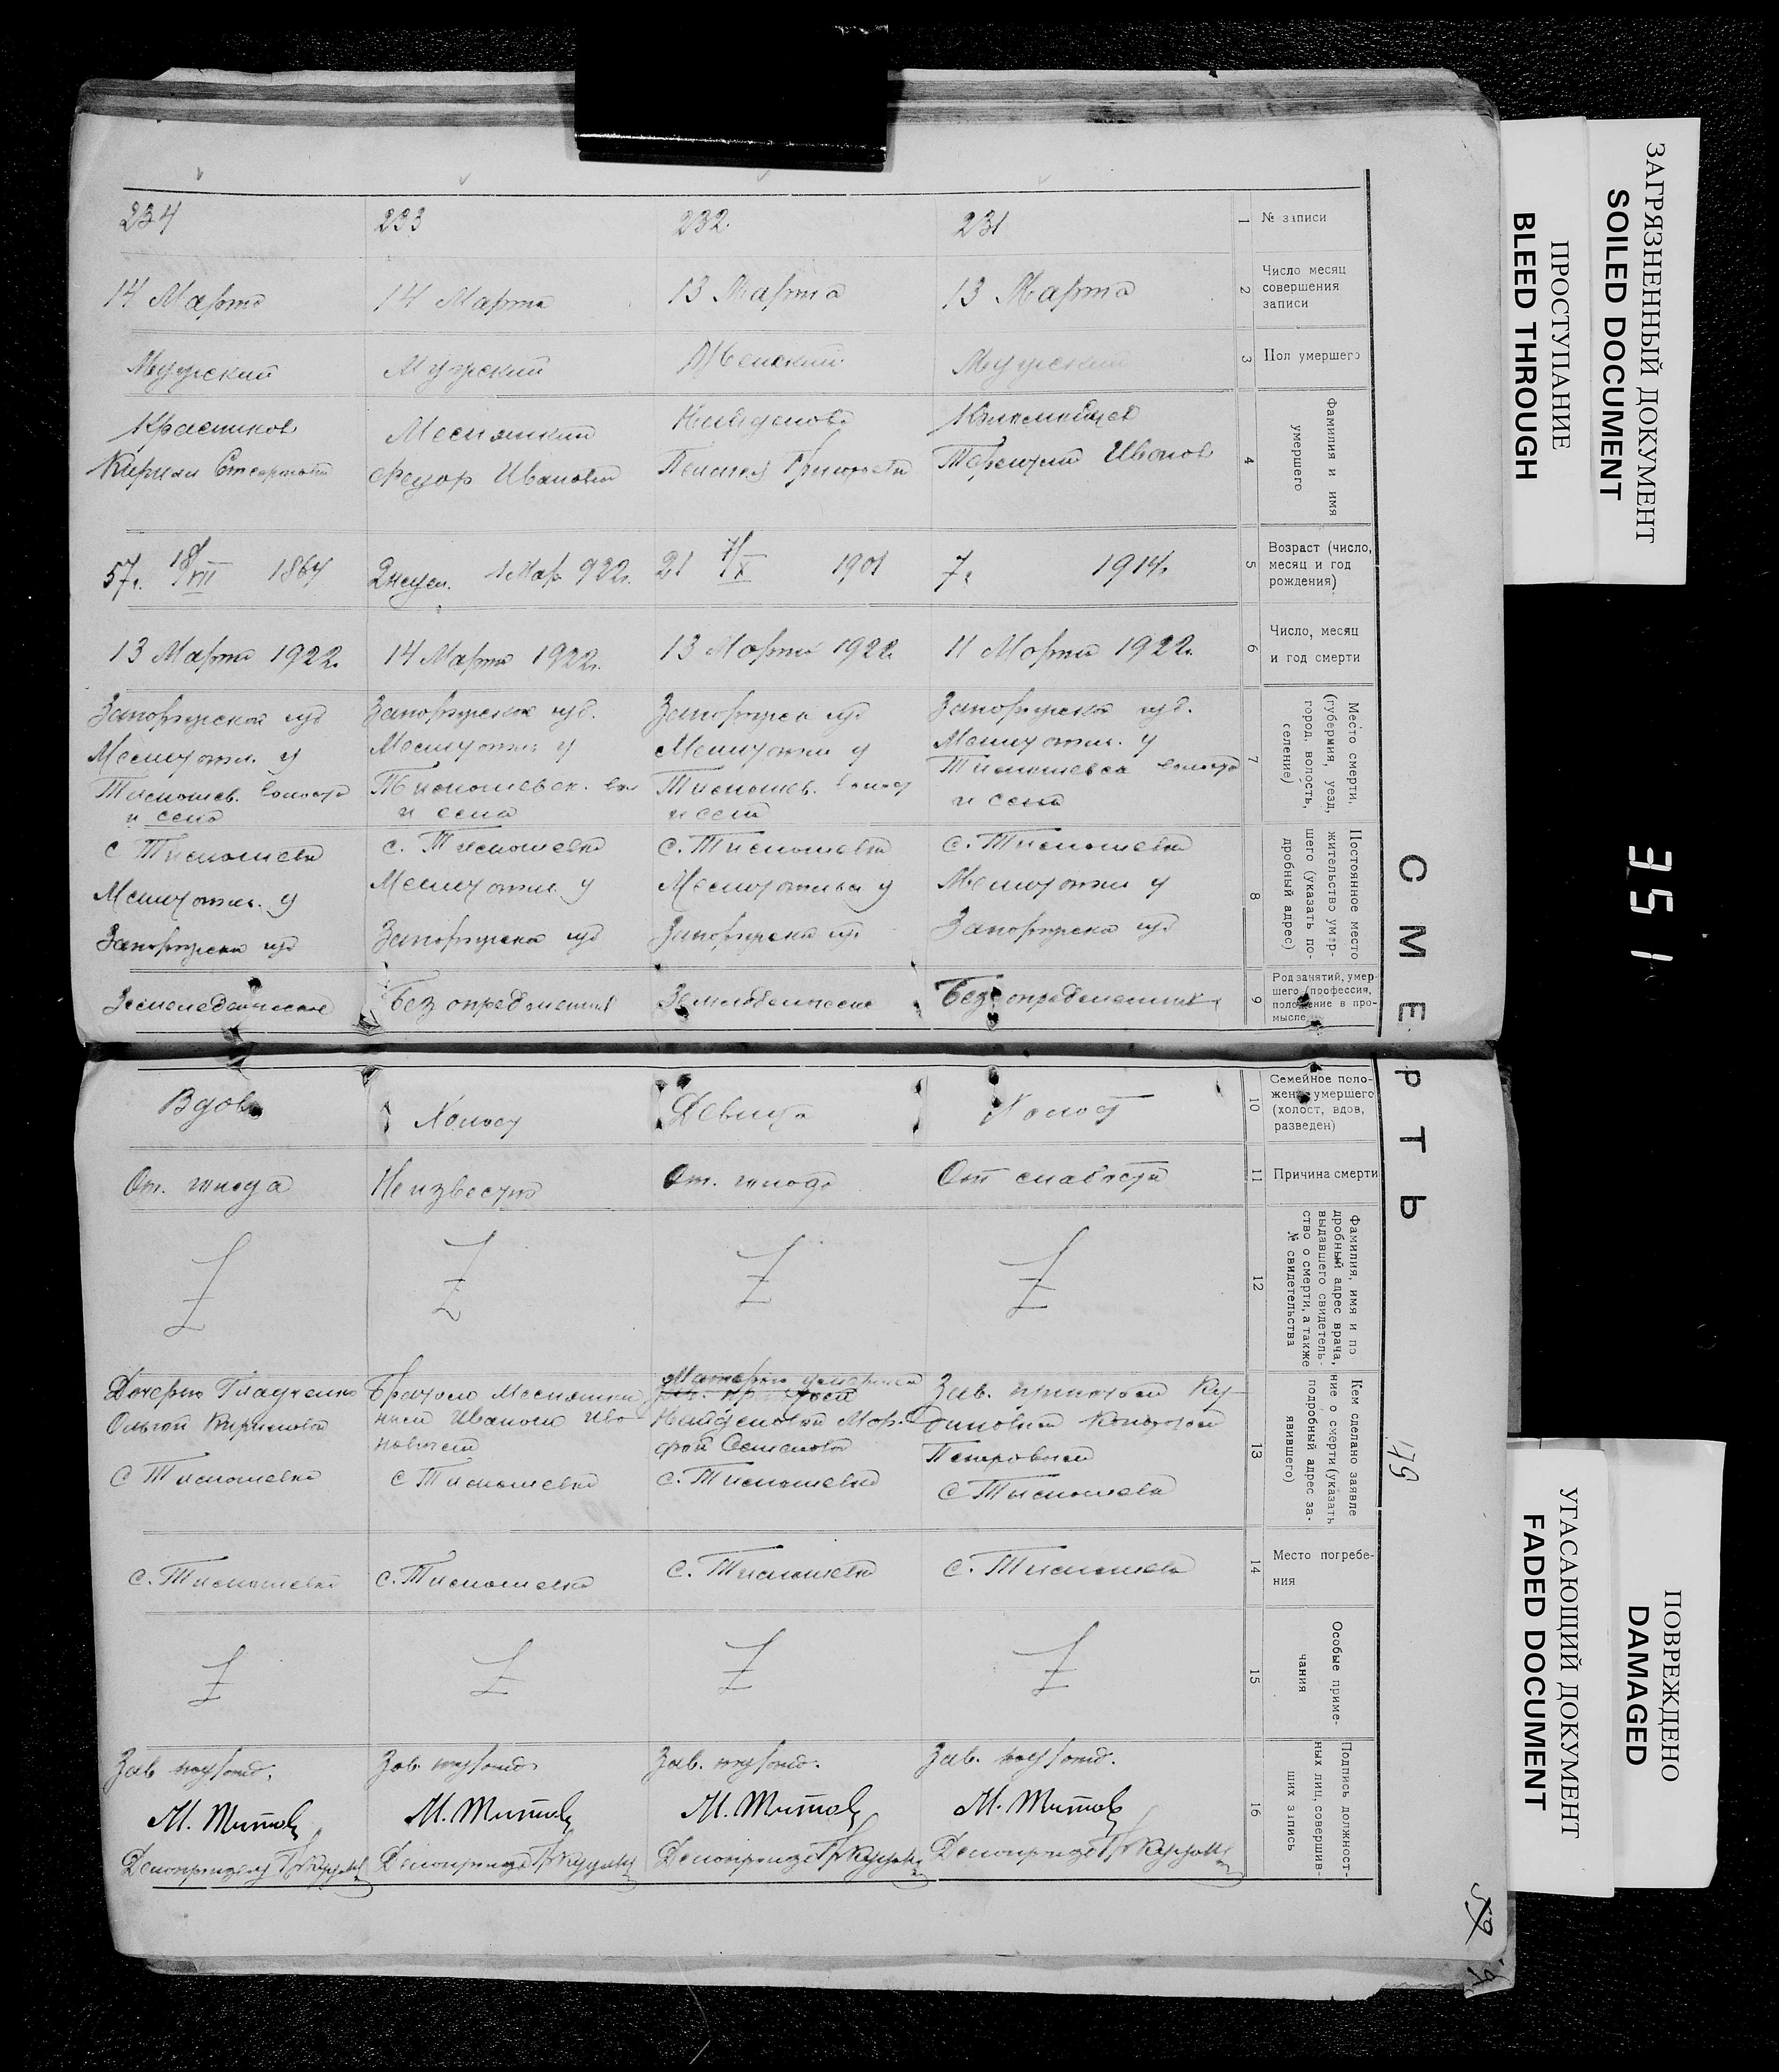 ЗАГРЯЗНЕННЫЙ ДОКУМЕНТ
SOILED DOCUMENT
ПРОСТУПАНИЕ
BLEED THROUGH
351
ПОВРЕЖДЕНО
DAMAGED
УГАСАЮЩИЙ ДОКУМЕНТ
FADED DOCUMENT
СМЕРТЬ
179
59
1 № записи
231
232.
233
234
2 Число месяц
совершения
записи
13 Марта
13 Марта
14 Марта
14 Марта
3 Пол умершего
Мужский
Женский
Мужский
Мужский
4 Фамилия и имя
умершего
Терентий Иванов
Найденова
Пелагея
Федор Иванович
Красников
Кирилл
5 Возраст (число,
месяц и год
рождения)
7г. 1914г.
21 7/X 1901
2 недел. 1 Мар. 922г.
57г. 18/VII 1864
6 Число, месяц
и год смерти
11 Марта 1922г.
13 Марта 1922
14 Марта 1922г.
13 Марта 1922г.
7 Место смерти,
(губермия, уезд,
город, волость,
селение)
Запорожская губ.
Мелитопл. у
Тимошевск волость
и село
Запорожск губ
Мелитопл у
Тимошев. волост
и село
Запорожская губ.
Мелитопл. у
Тимошевск. вол
и село
Запорожской губ
Мелитопл. у
Тимошев. волость
и село
8 Постоянное место
жительство умер-
шего (указать по-
дробный адрес)
с. Тимошевка
Мелитопл у
Запорожска губ
с. Тимошевка
Мелитопльск у
Запорожска губ
с. Тимошевка
Мелитопл. у
Запорожска губ
с Тимошевка
Мелитопл. у
Запорожска губ
9 Род занятий, умер-
шего (профессия,
положение в про-
мысле
Без определенных
Земледельческо
Без определенных
Земледельческое
10 Семейное поло-
жен умершего
(холост, вдов,
разведен)
Холост
Девица
Холост
Вдов
11 Причина смерти
От слабости
От. голода
Неизвестно
От. голода
12 Фамилия, имя и по
дробный адрес врача,
выдавшего свидетель-
ство о смерти, а также
№ свидетельства
Z
Z
Z
Z
13 Кем сделано заявле
ние о смерти (указать
подробный адрес за-
явившего)
Зав. приютом Ку-
Петровным
с Тимошевка
Матерью умершей
Найденовой Мар-
фой Семенова
с. Тимошевка
Братом
ным Иваном Ива-
новичем
с Тимошевка
Дочерью Гладченко
Ольгой Кириловой
с Тимошевка
14 Место погребе-
ния
с. Тимошевка
с. Тимошевка
с. Тимошевка
с. Тимошевка
15 Особые приме-
чания
Z
Z
Z
Z
16 Подпись должност-
ных лиц, совершив-
ших запись
Зав.
М. Титов
Делопроизв
Зав.
М. Титов
Делопроизв
Зав.
М. Титов
Делопроизв
Зав
М. Титов
Делопроизв